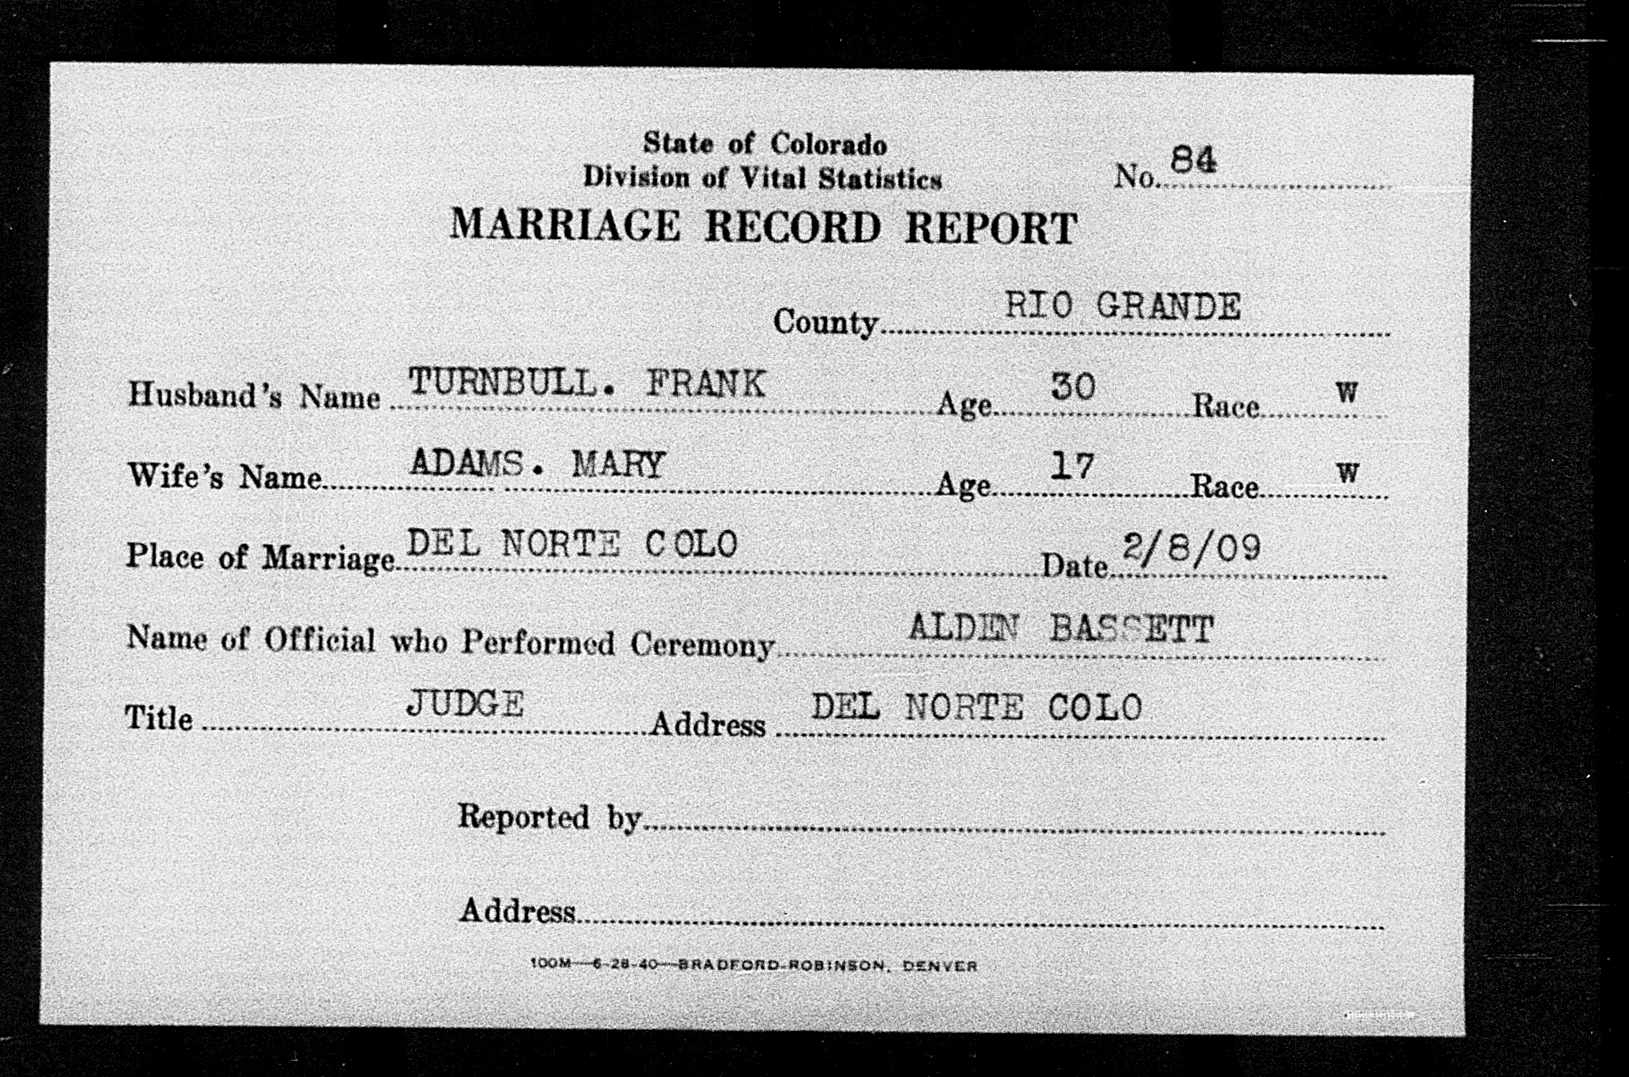 State of Colorado
Division of Vital Statistics
No. 84
MARRIAGE RECORD REPORT
County RIO GRANDE
Husband's Name TURNBULL. FRANK Age 30 Race W
Wife's Name ADAMS. MARY Age 17 Race W
Place of Marriage DEL NORTE COLO Date 2/8/09
Name of Official who Performed Ceremony ALDEN BASSETT
Title JUDGE Address DEL NORTE COLO
Reported by
Address
100M—6-28-40—BRADFORD-ROBINSON, DENVER